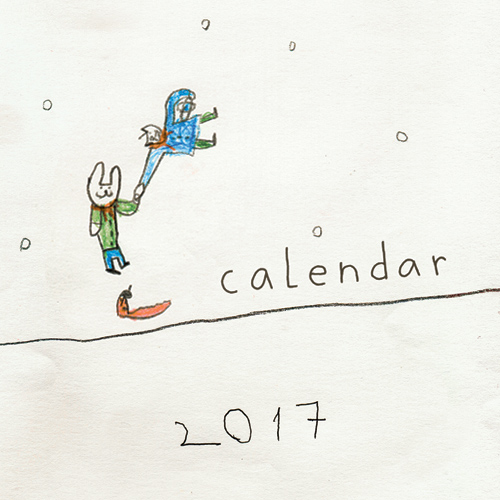 calendar
2017